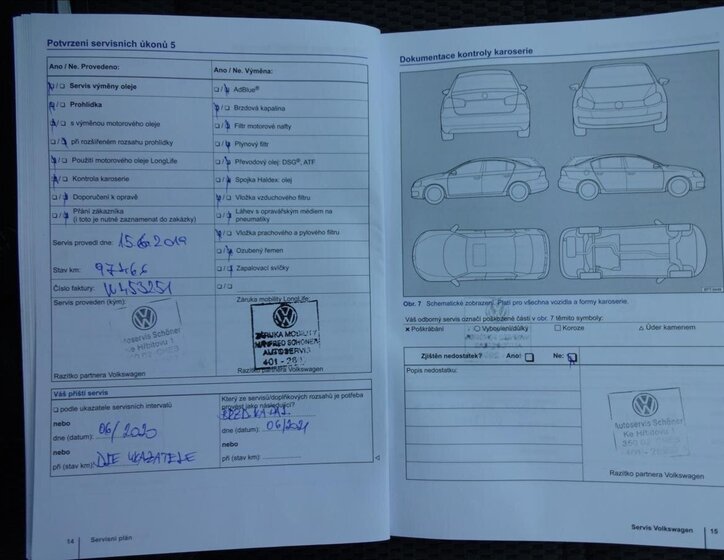 Potvrzení servisních úkonů 5
Ano / Ne. Provedeno:
Servis výměny oleje
Prohlídka
s výměnou motorového oleje
při rozšířeném rozsahu prohlídky
Použití motorového oleje LongLife
Kontrola karoserie
Doporučení k opravě
Přání zákazníka
(i toto je nutně zaznamenat do zakázky)
Servis provedl dne: 15.6. 2019
Stav km: 97466
Číslo faktury: W453251
Servis proveden (kým):
Autoservis Schöner
Ke Hřbitovu 1
Razítko partnera Volkswagen
Ano / Ne. Výměna:
AdBlue®
Brzdová kapalina
Filtr motorové nafty
Plynový filtr
Převodový olej: DSG®, ATF
Spojka Haldex: olej
Vložka vzduchového filtru
Láhev s opravářským médiem na
pneumatiky
Vložka prachového a pylového filtru
Ozubený řemen
Zapalovací svíčky
Záruka mobility LongLife:
ZÁRUKA MOBILITY
MANFRED SCHÖNER
AUTOSERVIS
Razítko partnera Volkswagen
Váš příští servis
podle ukazatele servisních intervalů
nebo
dne (datum): 06/2020
nebo
při (stav km): DLE UKAZATELE
Který ze servisů/doplňkových rozsahů je potřeba
provést jako následující?
BRZD. KAPAL.
dne (datum): 06/2021
nebo
při (stav km):
14 Servisní plán
Dokumentace kontroly karoserie
Obr. 7 Schematické zobrazení. Platí pro všechna vozidla a formy karoserie.
Váš odborný servis označí poškozené části v obr. 7 těmito symboly:
× Poškrábání ○ Vybouleni/důlky □ Koroze △ Úder kamenem
Zjištěn nedostatek? Ano: Ne:
Popis nedostatku:
Autoservis Schöner
Ke Hřbitovu 1
Razítko partnera Volkswagen
Servis Volkswagen 15